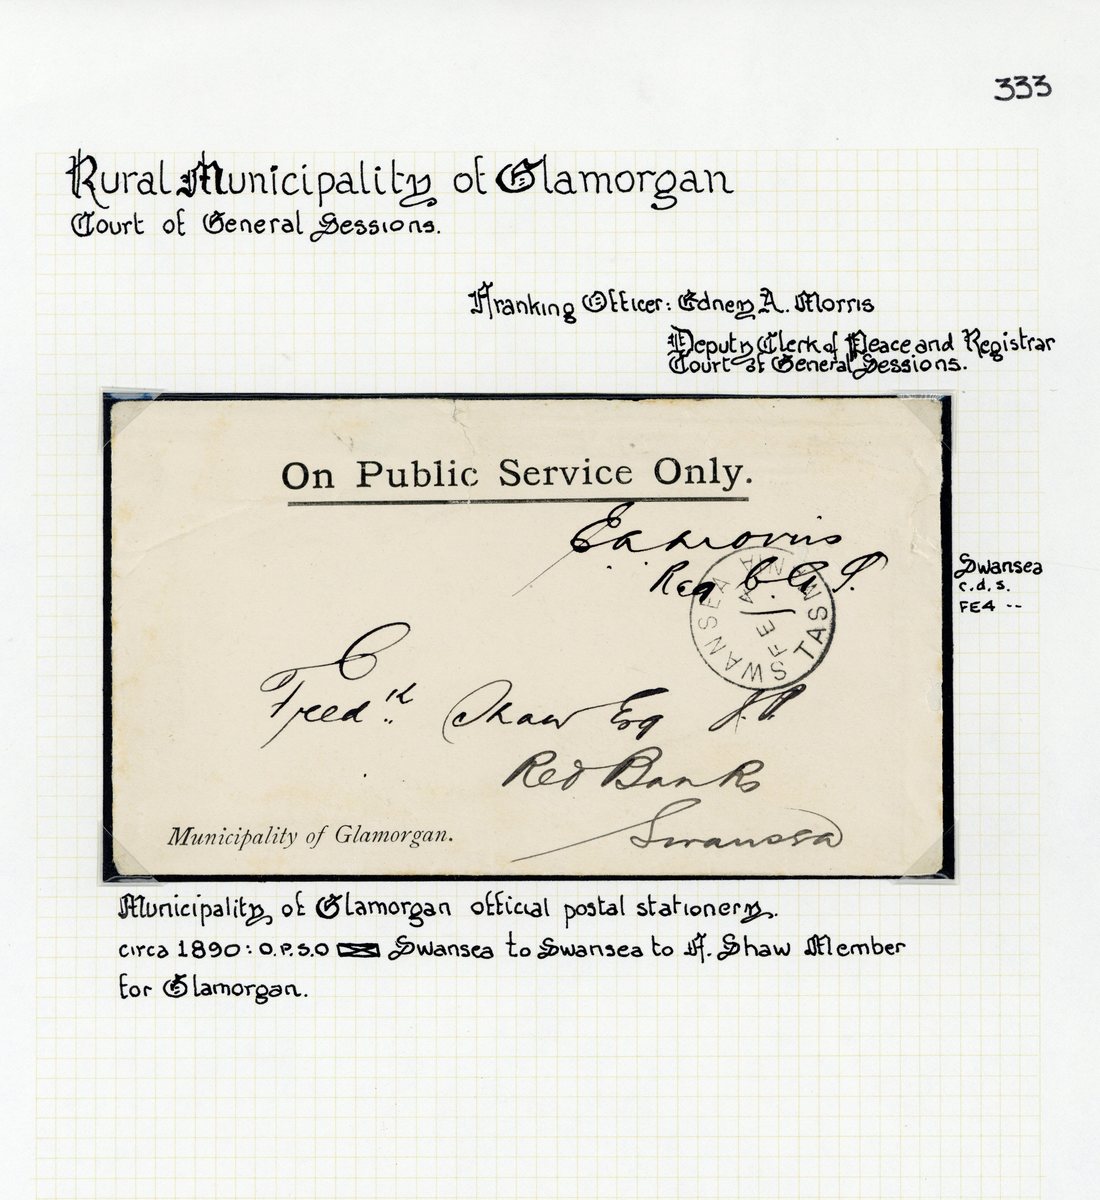 333
Rural Municipality of Glamorgan
Court of General Sessions.
Franking Officer: Edney A. Morris
Deputy Clerk of Peace and Registrar
Court of General Sessions.
On Public Service Only.
EAMorris
Reg C.G.S.
SWANSEA TASMANIA
FE
Swansea
c.d.s.
FE4 --
Fred.k Shaw Esq J.P.
Red Banks
Swansea
Municipality of Glamorgan.
Municipality of Glamorgan official postal stationery.
circa 1890: O.P.S.O Swansea to Swansea to F. Shaw Member
for Glamorgan.